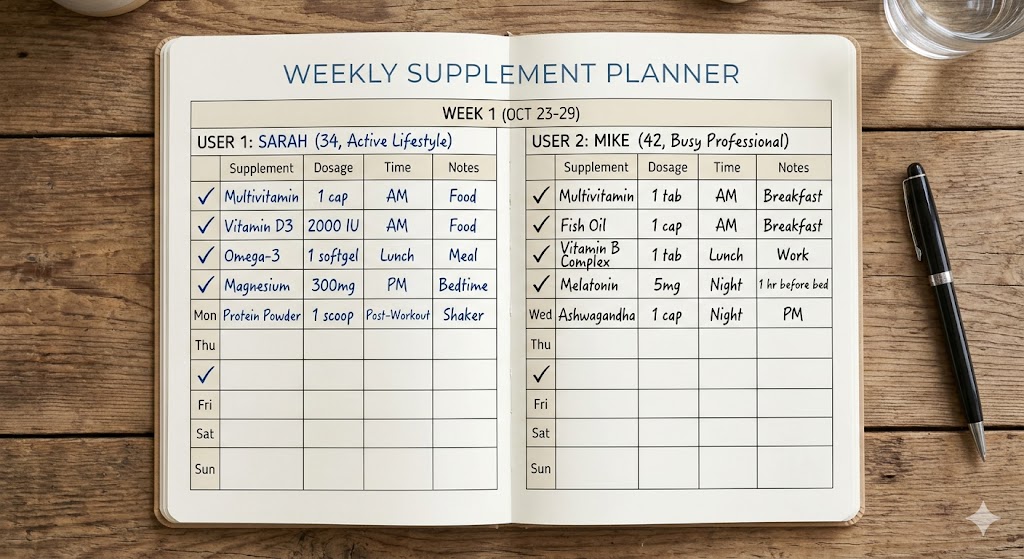 WEEKLY SUPPLEMENT PLANNER
WEEK 1 (OCT 23-29)
USER 1: SARAH (34, Active Lifestyle)
Supplement Dosage Time Notes
✓ Multivitamin 1 cap AM Food
✓ Vitamin D3 2000 IU AM Food
✓ Omega-3 1 softgel Lunch Meal
✓ Magnesium 300mg PM Bedtime
Mon Protein Powder 1 scoop Post-Workout Shaker
Thu
✓
Fri
Sat
Sun
USER 2: MIKE (42, Busy Professional)
Supplement Dosage Time Notes
✓ Multivitamin 1 tab AM Breakfast
✓ Fish Oil 1 cap AM Breakfast
✓ Vitamin B Complex 1 tab Lunch Work
✓ Melatonin 5mg Night 1 hr before bed
Wed Ashwagandha 1 cap Night PM
Thu
✓
Fri
Sat
Sun